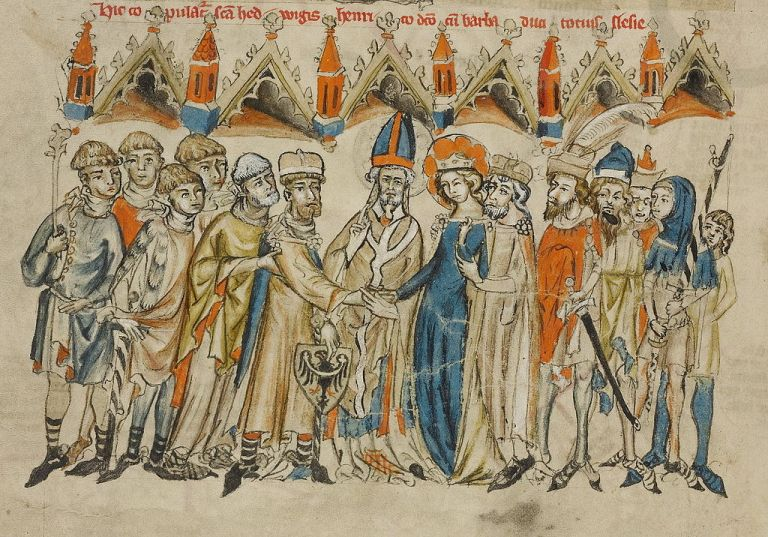 Hic co pulat᷑ sc̄a hed wigis henri co dc̄o cū barba duci totius slesie